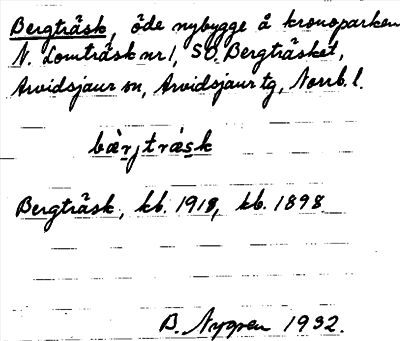 Bergträsk, öde nybygge å kronoparken
N. Lomträsk nr 1, SO. Bergträsket,
Arvidsjaur sn, Arvidsjaur tg, Norrb. l.
bæ̀rjtrȧsk
Bergträsk, kb. 1918, kb. 1898
B. Nygren 1932.